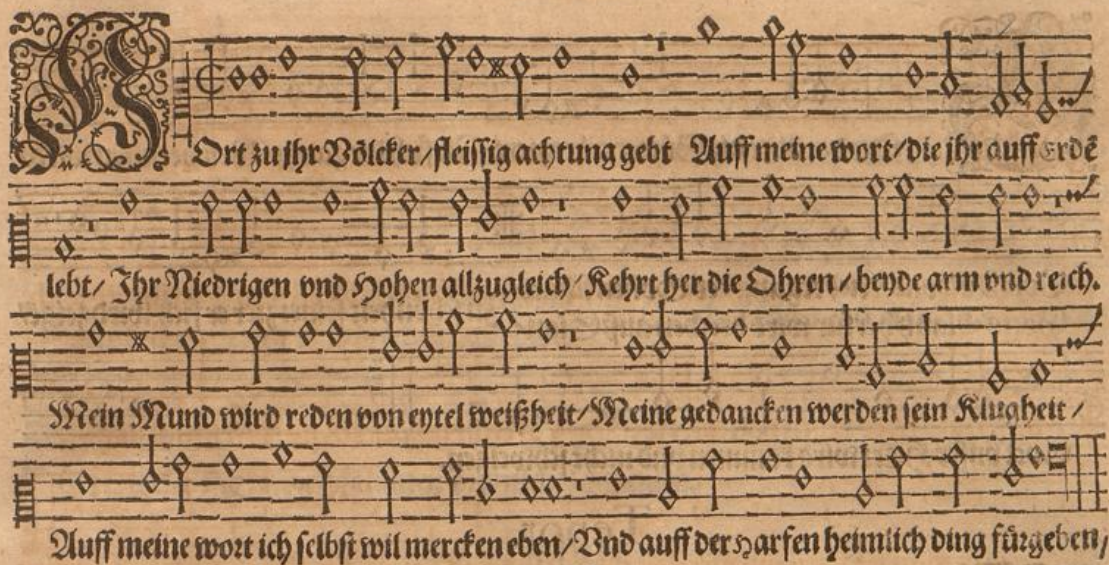 HOrt zu jhr Völcker/fleissig achtung gebt Auff meine wort/die jhr auff erdẽ
lebt/ Jhr Niedrigen vnd Hohen allzugleich/Kehrt her die Ohren/beyde arm vnd reich.
Mein Mund wird reden von eytel weißheit/Meine gedancken werden sein Klugheit/
Auff meine wort ich selbst wil mercken eben/Vnd auff der Harfen heimlich ding fürgeben/